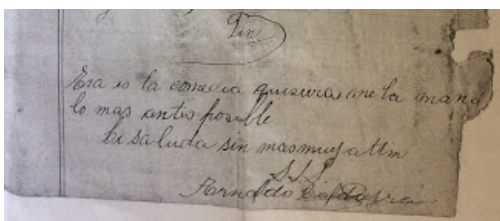 Fin
Esa es la comedia quisiera me la mand
lo mas antes posible
Le saluda sin mas muy attm
S.S.S.
Arnoldo